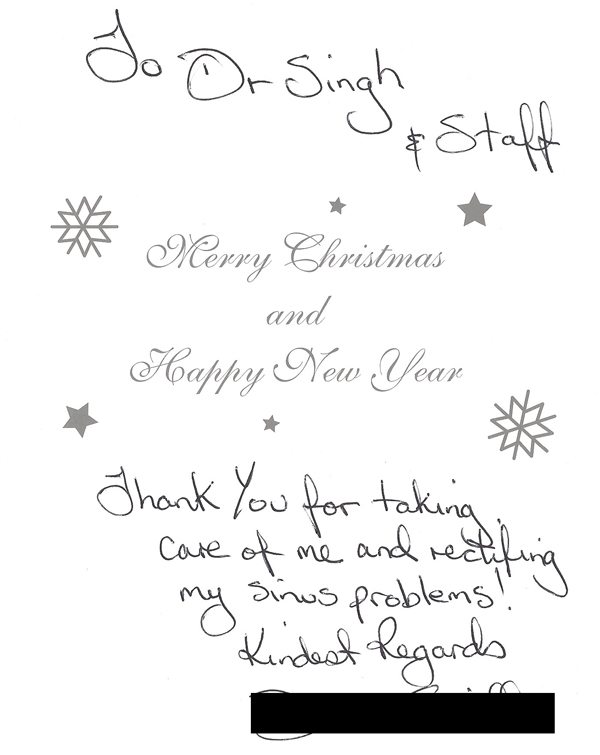 To Dr Singh
& Staff
Merry Christmas
and
Happy New Year
Thank You for taking
care of me and rectifing
my sinus problems!
Kindest Regards